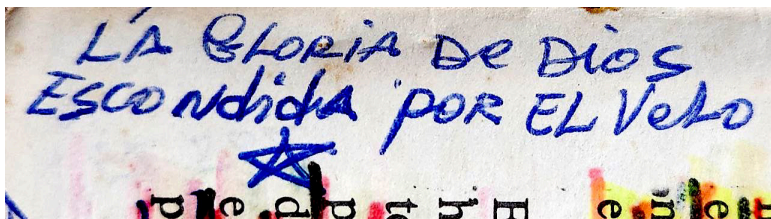 LA GLORIA De DioS
ESCONdidA POR EL VeLO